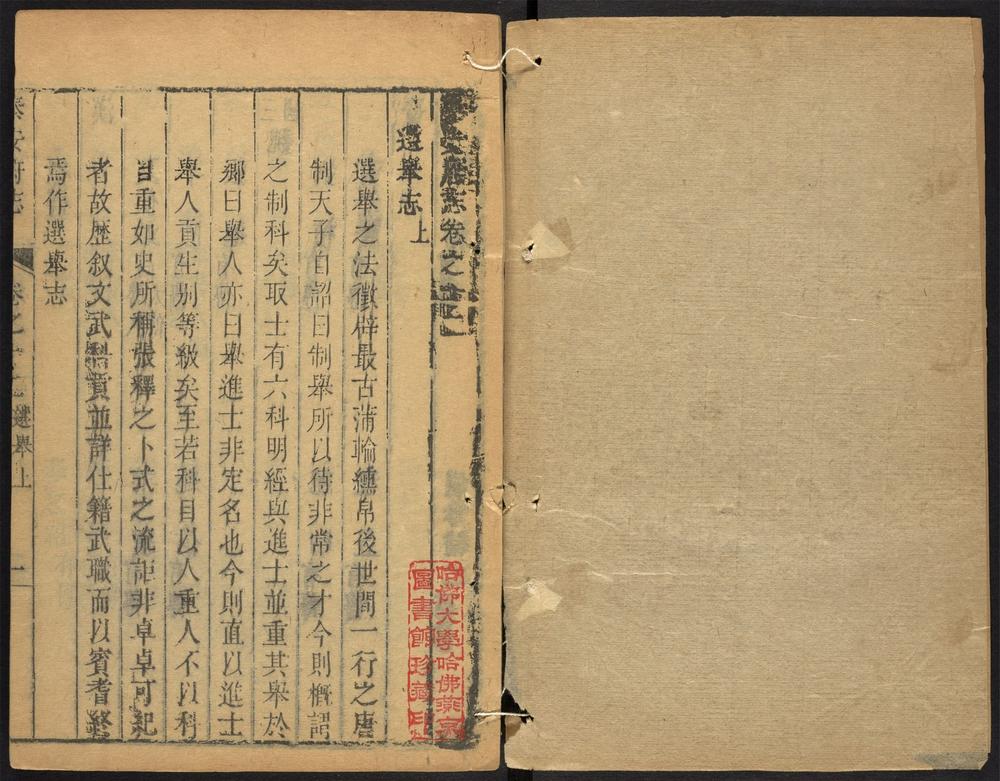 泰安府志卷之
選舉志上
選舉之法徵辟最古蒲輪纁帛後世間一行之唐
制天子自詔曰制舉所以待非常之才今則槪謂
之制科矣取士有六科明經與進士並重其舉於
鄉曰舉人亦曰舉進士非定名也今則直以進士
舉人貢生别等級矣至若科目以人重人不以科
目重如史所稱張釋之卜式之流詎非卓卓可紀
者故歴叙文武科貢並詳仕籍武職而以賓耆終
焉作選舉志
泰安府志 卷之 選舉上 一
哈佛大學哈佛燕京
圖書館珍藏印